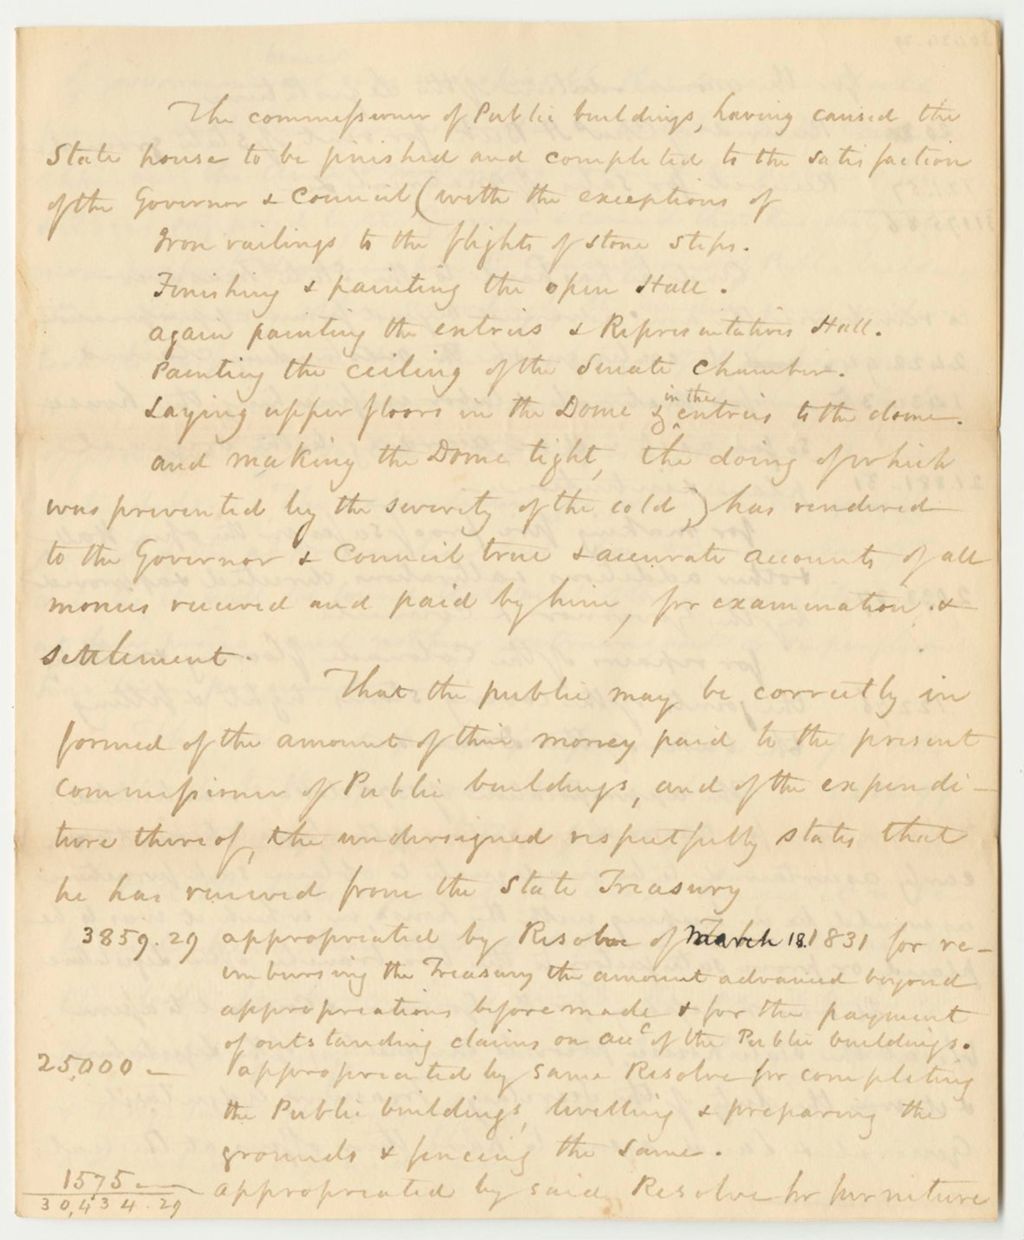 The commissioner of Public buildings, having caused the
State house to be finished and completed to the satisfaction
of the Governor & Council (with the exceptions of
Iron railings to the flights of stone steps.
Finishing & painting the open Hall.
again painting the entries & Representatives Hall.
Painting the ceiling of the Senate Chamber.
Laying upper floors in the Dome & in the entries to the dome.
and making the Dome tight, the doing of which
was prevented by the severity of the cold,) has rendered
to the Governor & Council true & accurate accounts of all
monies received and paid by him, for examination &
settlement.
That the public may be correctly in
formed of the amount of the money paid to the present
Commissioner of Public buildings, and of the expendi-
ture thereof, the undersigned respectfully states that
he has received from the State Treasury
3859.29 appropriated by Resolve of March 18. 1831 for re-
imbursing the Treasury the amount advanced beyond
appropriations before made & for the payment
of outstanding claims on acc of the Public buildings.
25,000 – appropriated by same Resolve for completing
the Public buildings, levelling & preparing the
grounds & fencing the same.
1575 — appropriated by said Resolve for furniture
30,434.29